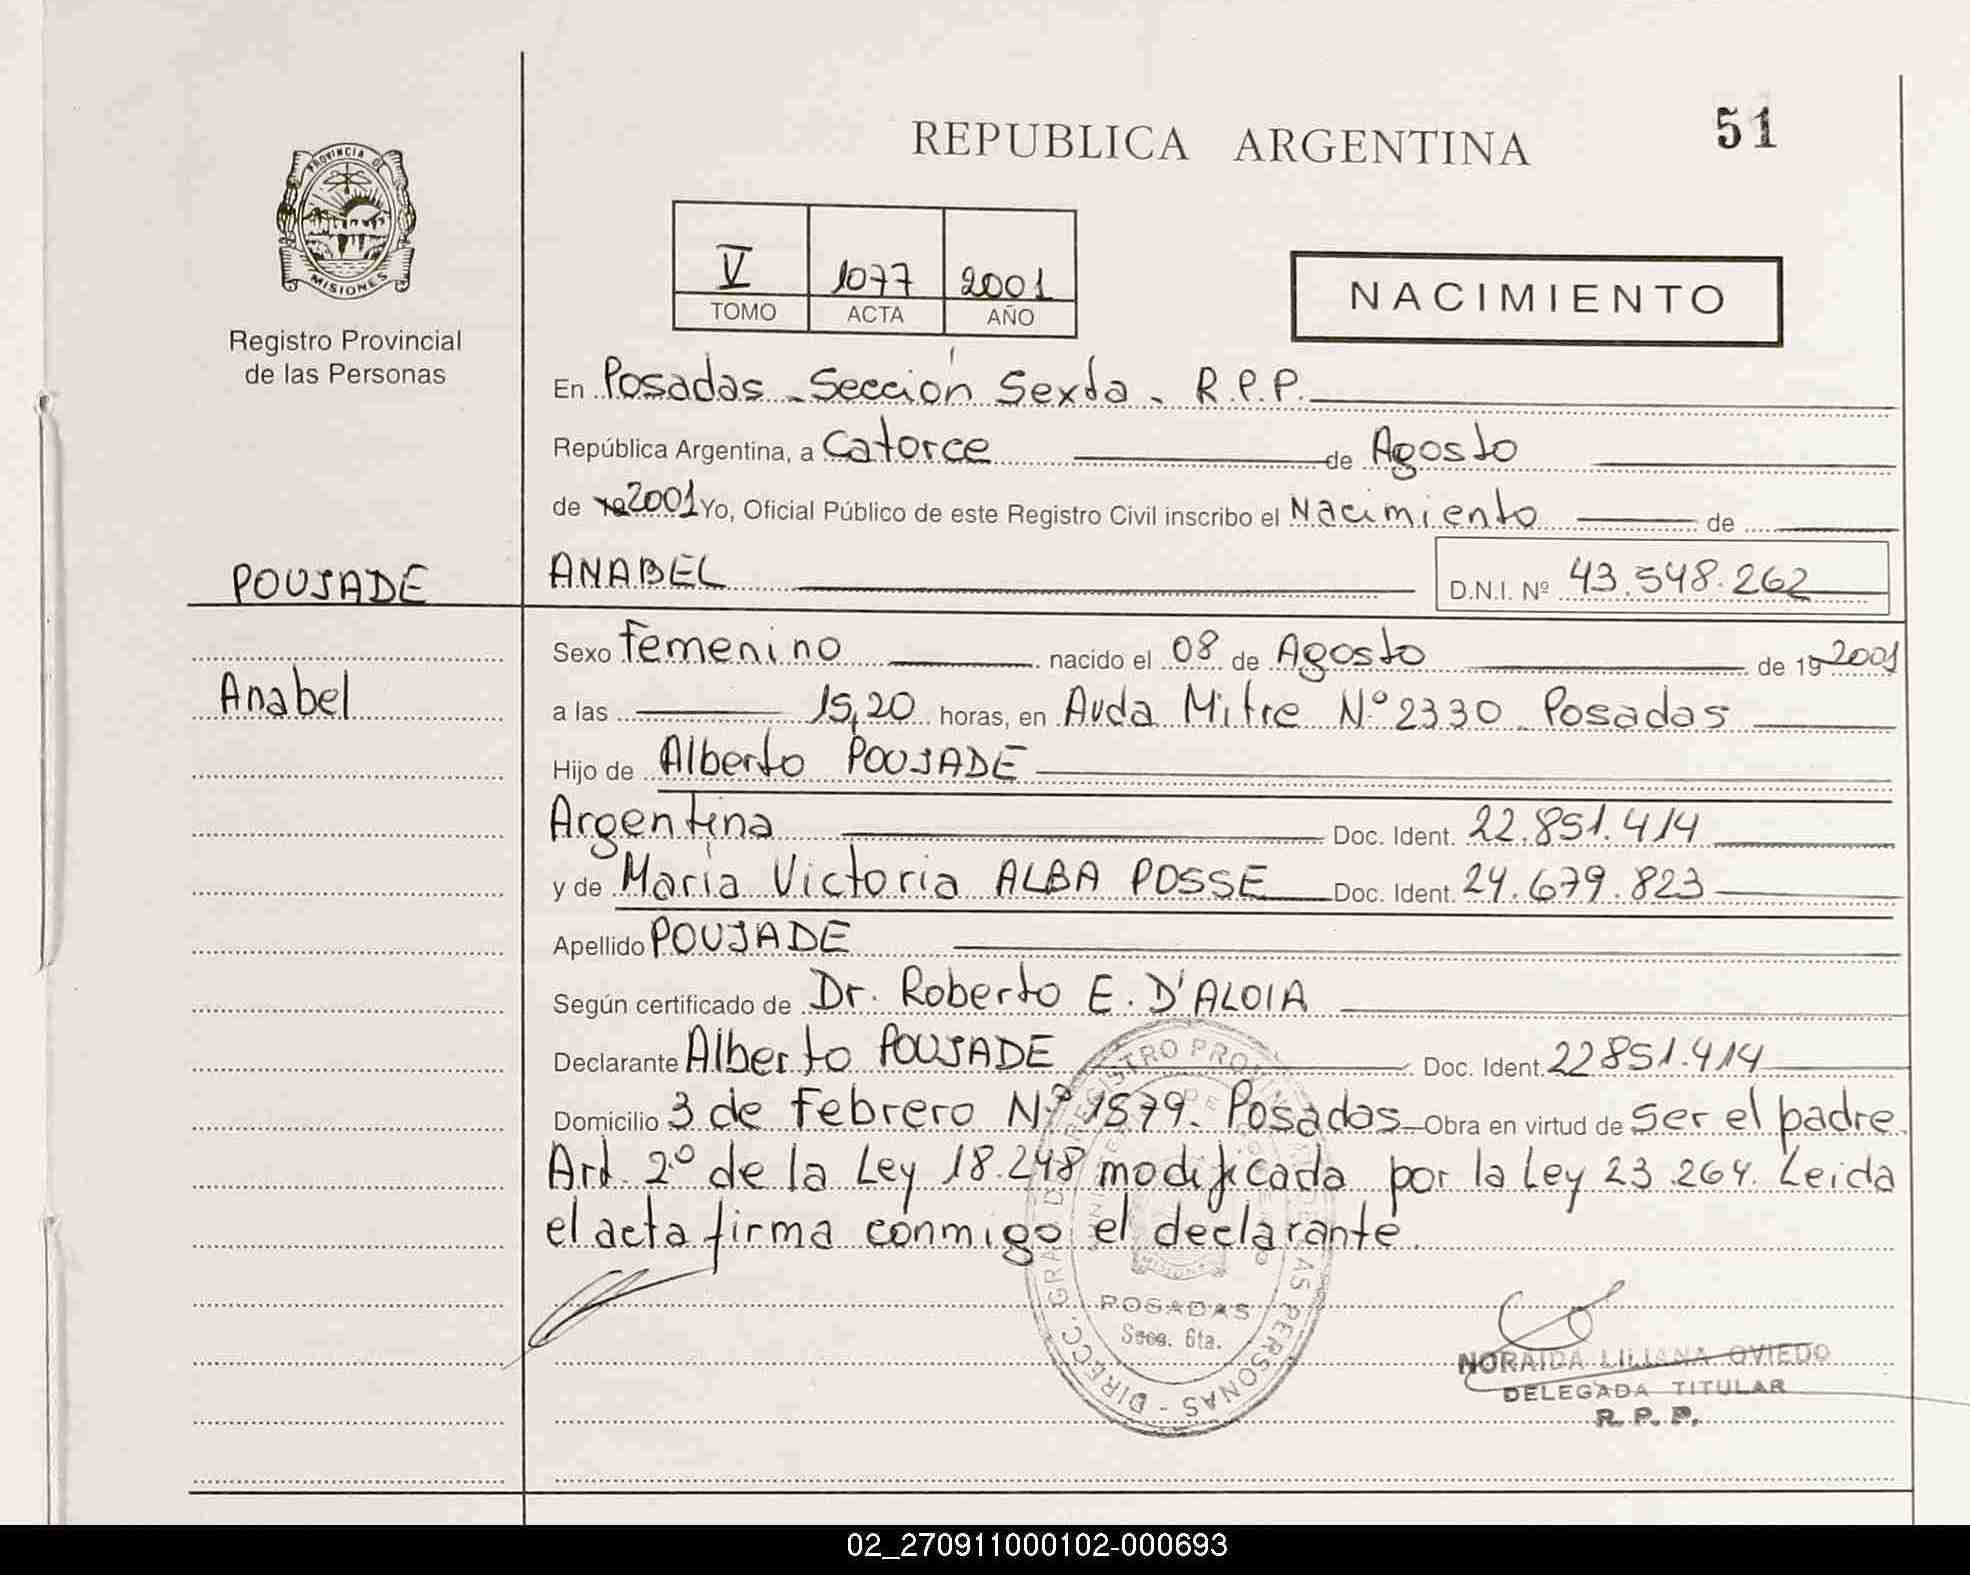 REPUBLICA ARGENTINA
51
PROVINCIA DE
MISIONES
Registro Provincial
de las Personas
V 1077 2001
TOMO ACTA AÑO
NACIMIENTO
En Posadas - Sección Sexta - R.P.P.
República Argentina, a Catorce de Agosto
de 19 2001 Yo, Oficial Público de este Registro Civil inscribo el Nacimiento de
POUJADE
ANABEL D.N.I. Nº 43.548.262
Sexo Femenino nacido el 08 de Agosto de 19 2001
Anabel
a las 15,20 horas, en Avda Mitre Nº 2330 Posadas
Hijo de Alberto POUJADE
Argentina Doc. Ident. 22.851.414
y de María Victoria ALBA POSSE Doc. Ident. 24.679.823
Apellido POUJADE
Según certificado de Dr. Roberto E. D'ALOIA
Declarante Alberto POUJADE Doc. Ident. 22851.414
Domicilio 3 de Febrero Nº 1879. Posadas Obra en virtud de Ser el padre.
Art. 2º de la Ley 18.248 modificada por la Ley 23.264. Leida
el acta firma conmigo el declarante.
POSADAS
Secc. 6ta.
NORAIDA LILIANA OVIEDO
DELEGADA TITULAR
R. P. P.
02_270911000102-000693